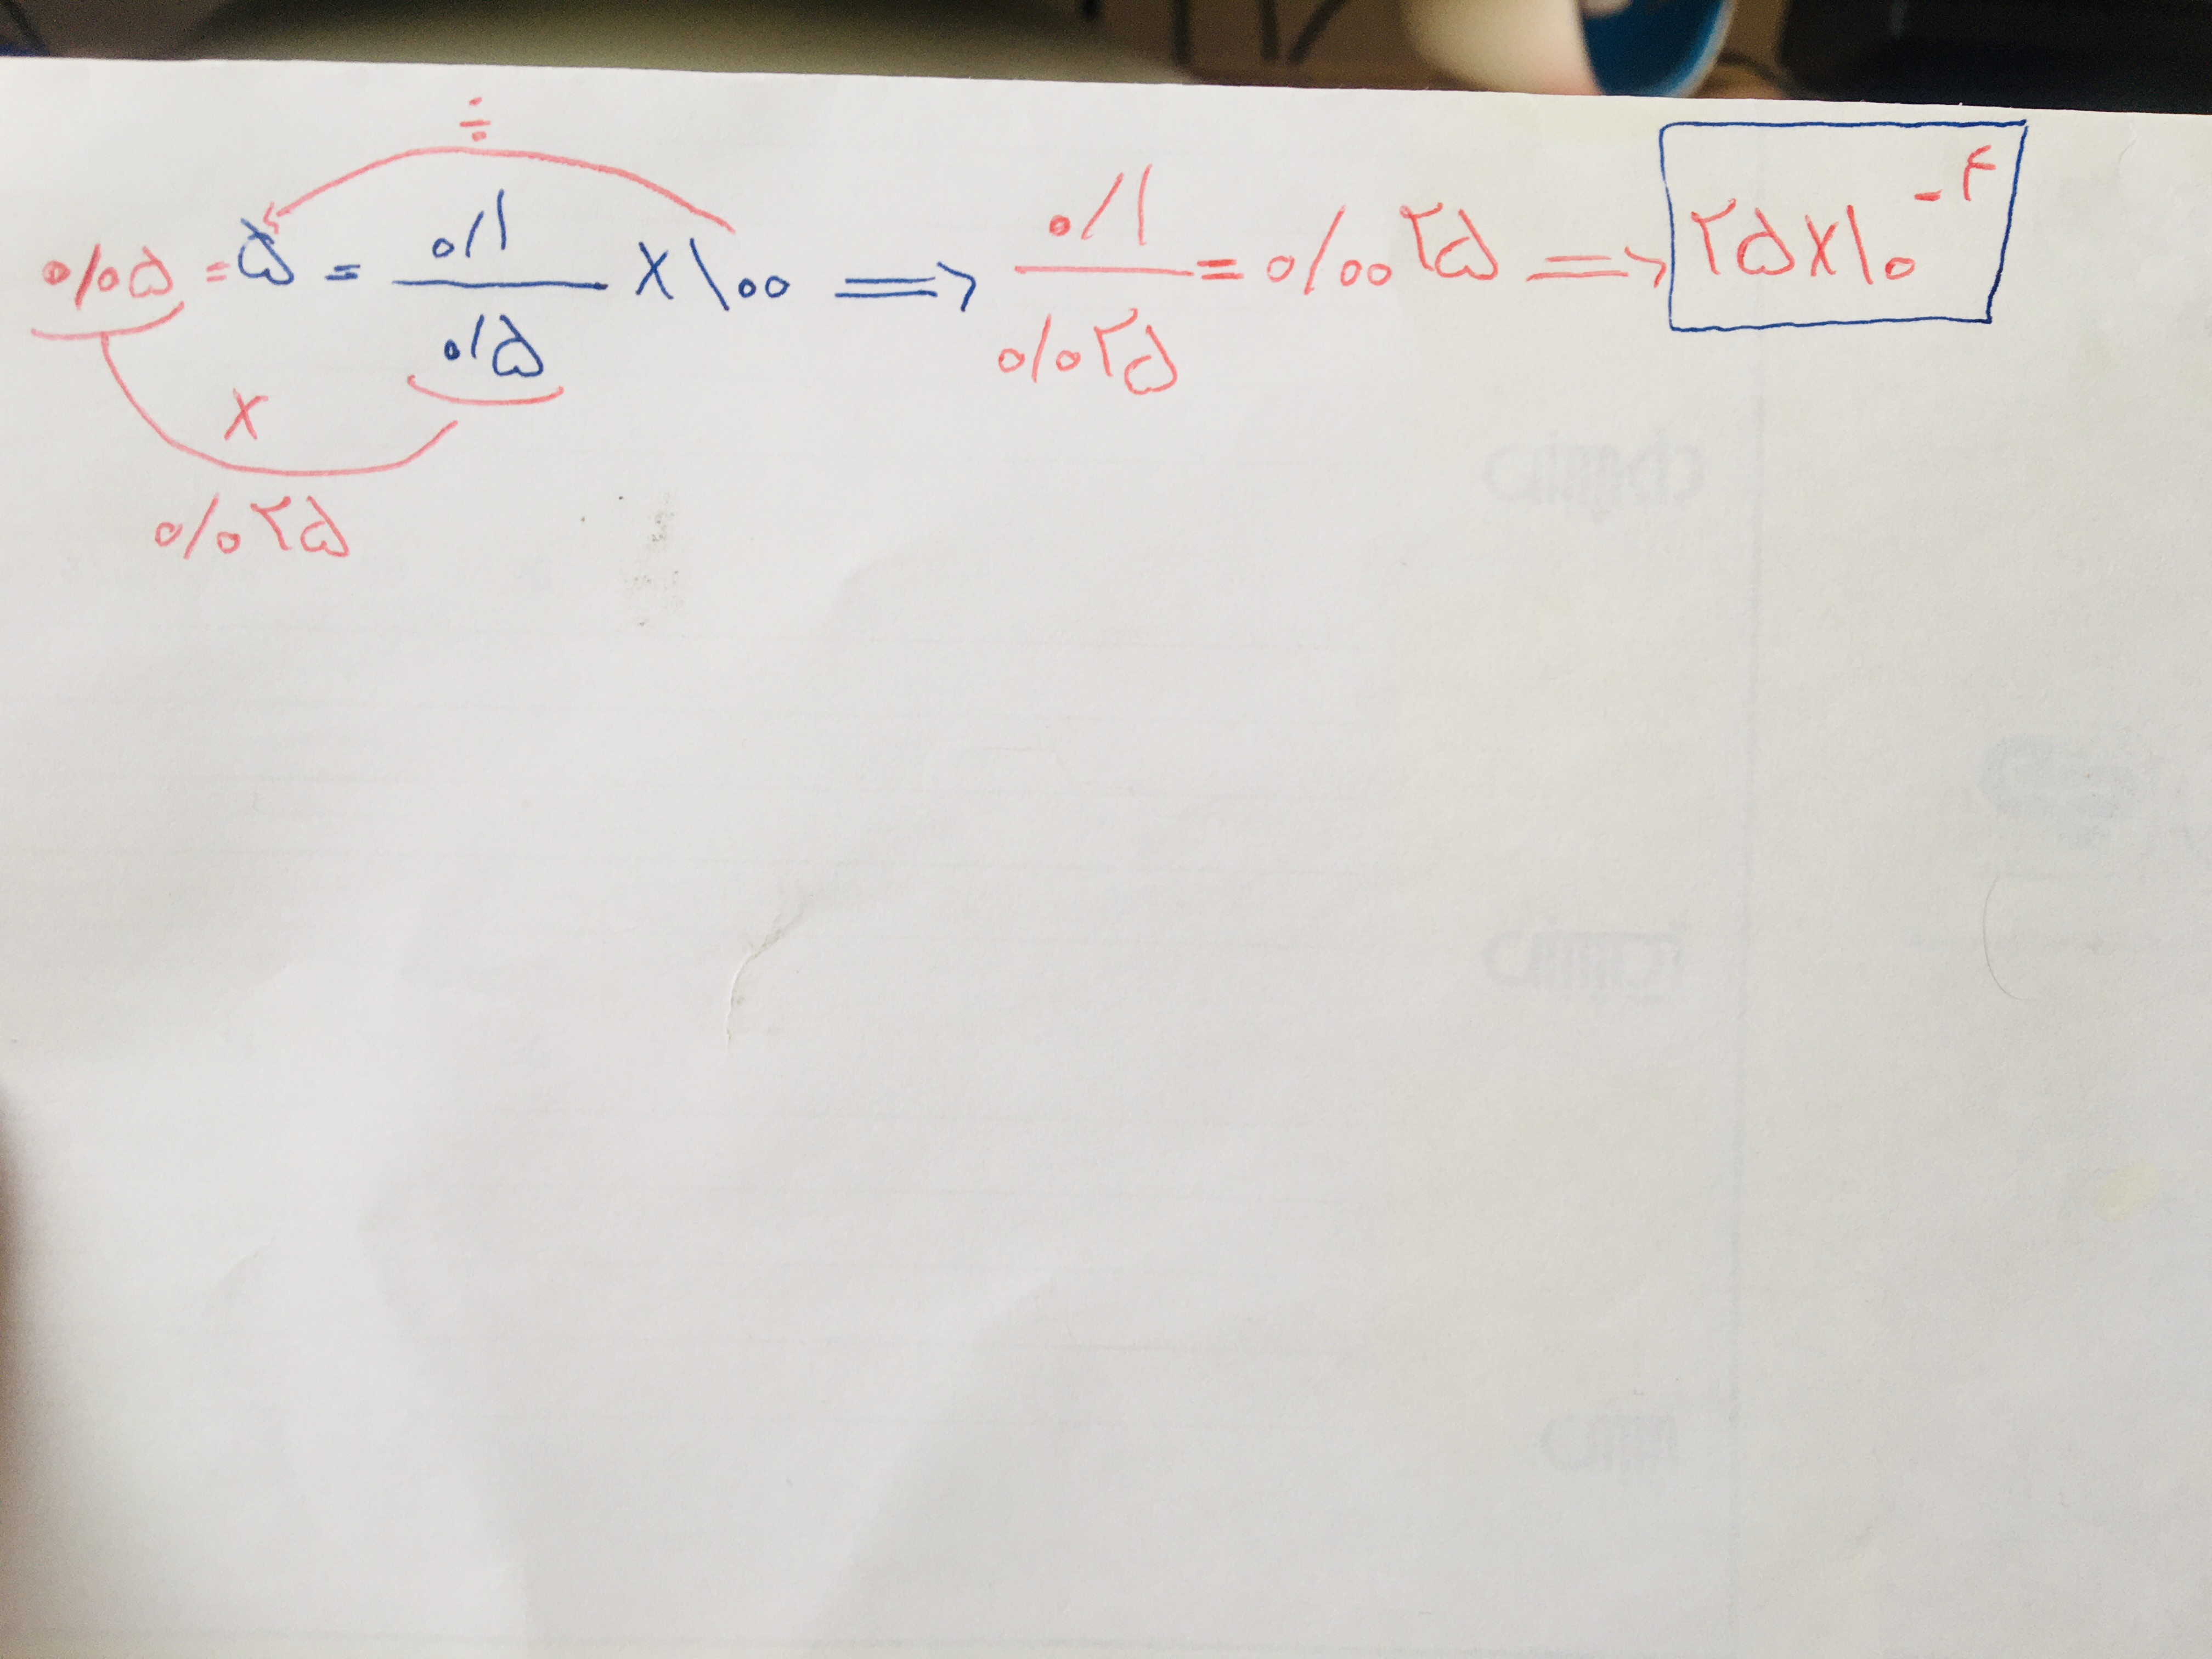 ÷
۰/۰۵ = ۵ = ۰/۱ / ۰/۵ × ۱۰۰ ⟹ ۰/۱ / ۰/۰۲۵ = ۰/۰۰۲۵ ⟹ ۲۵×۱۰^-۴
×
۰/۰۲۵